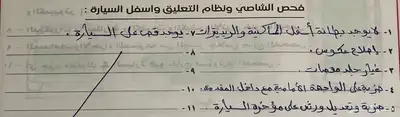 فحص الشاصي ونظام التعليق واسفل السيارة :
١- لا يوجد بطانة أسفل الماكينة والرديترات ٧- يوجد قص على السيارة .
٢- إصلاح عكوس . ٨-
٣- غيار جلد مقصات . ٩-
٤- ضربة على الواجهة الأمامية مع داخل المقدمة . ١٠-
٥- ضربة وتعديل ورش على مؤخرة السيارة . ١١-